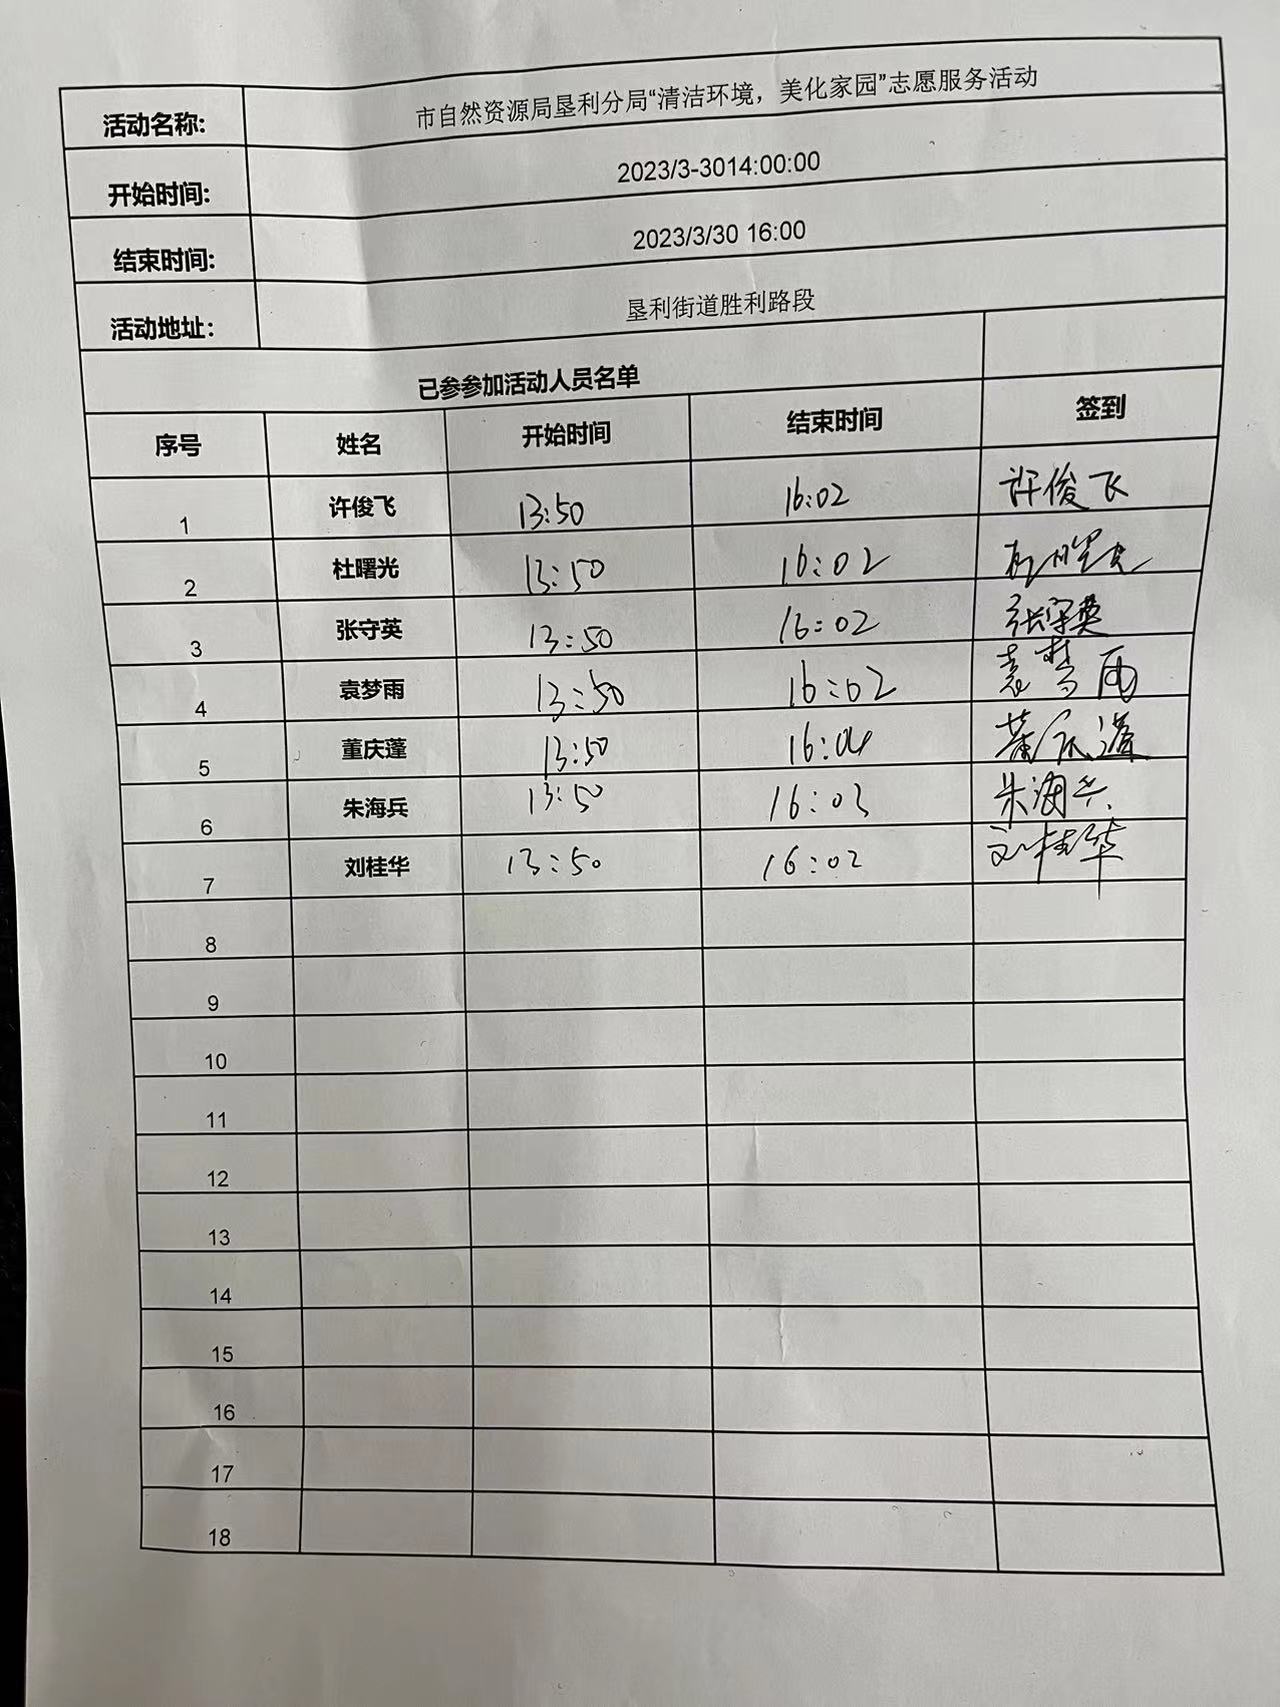 活动名称: 市自然资源局垦利分局“清洁环境，美化家园”志愿服务活动
开始时间: 2023/3-3014:00:00
结束时间: 2023/3/30 16:00
活动地址: 垦利街道胜利路段
已参参加活动人员名单
序号 姓名 开始时间 结束时间 签到
1 许俊飞 13:50 16:02 许俊飞
2 杜曙光 13:50 16:02
3 张守英 13:50 16:02 张守英
4 袁梦雨 13:50 16:02 袁梦雨
5 董庆蓬 13:50 16:04 董庆蓬
6 朱海兵 13:50 16:03 朱海兵
7 刘桂华 13:50 16:02 刘桂华
8
9
10
11
12
13
14
15
16
17
18